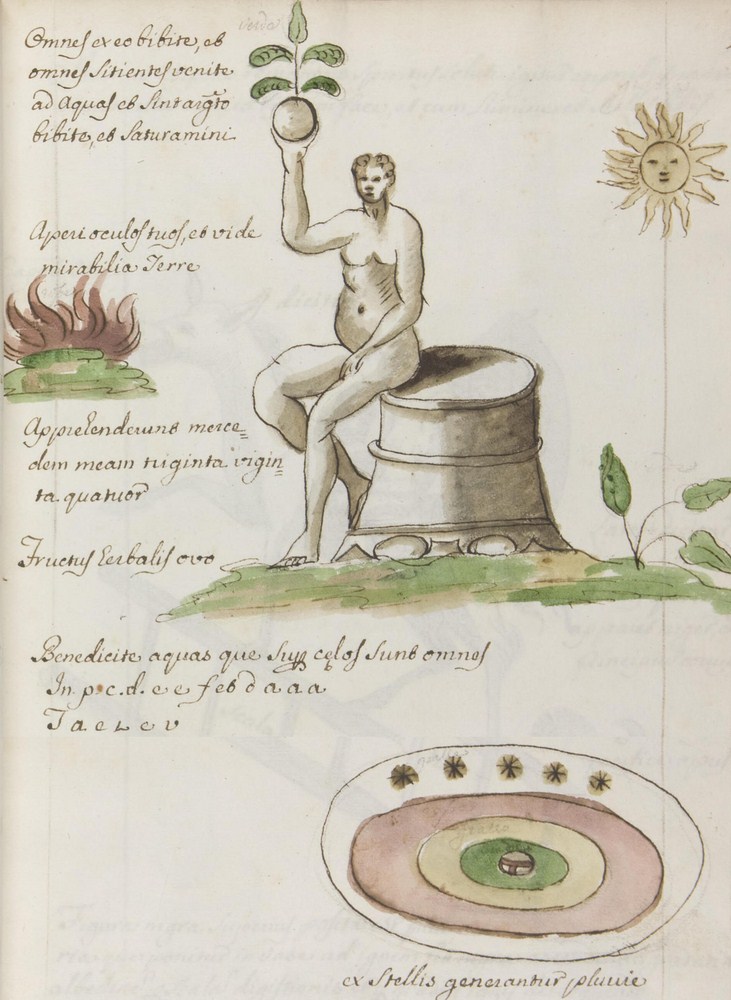 Omnes ex eo bibite, et
omnes Sitientes venite
ad Aquas et
bibite, et Saturamini
Aperi oculos tuos, et vide
mirabilia Terre
Apprehenderunt merce=
dem meam triginta vigin=
ta quatuor
Fructus herbalis ovo
Benedicite aquas que Sup cęlos Sunt omnes
In p.c.d. e e f et d a a a
T a e L e v
ex Stellis generantur pluvie